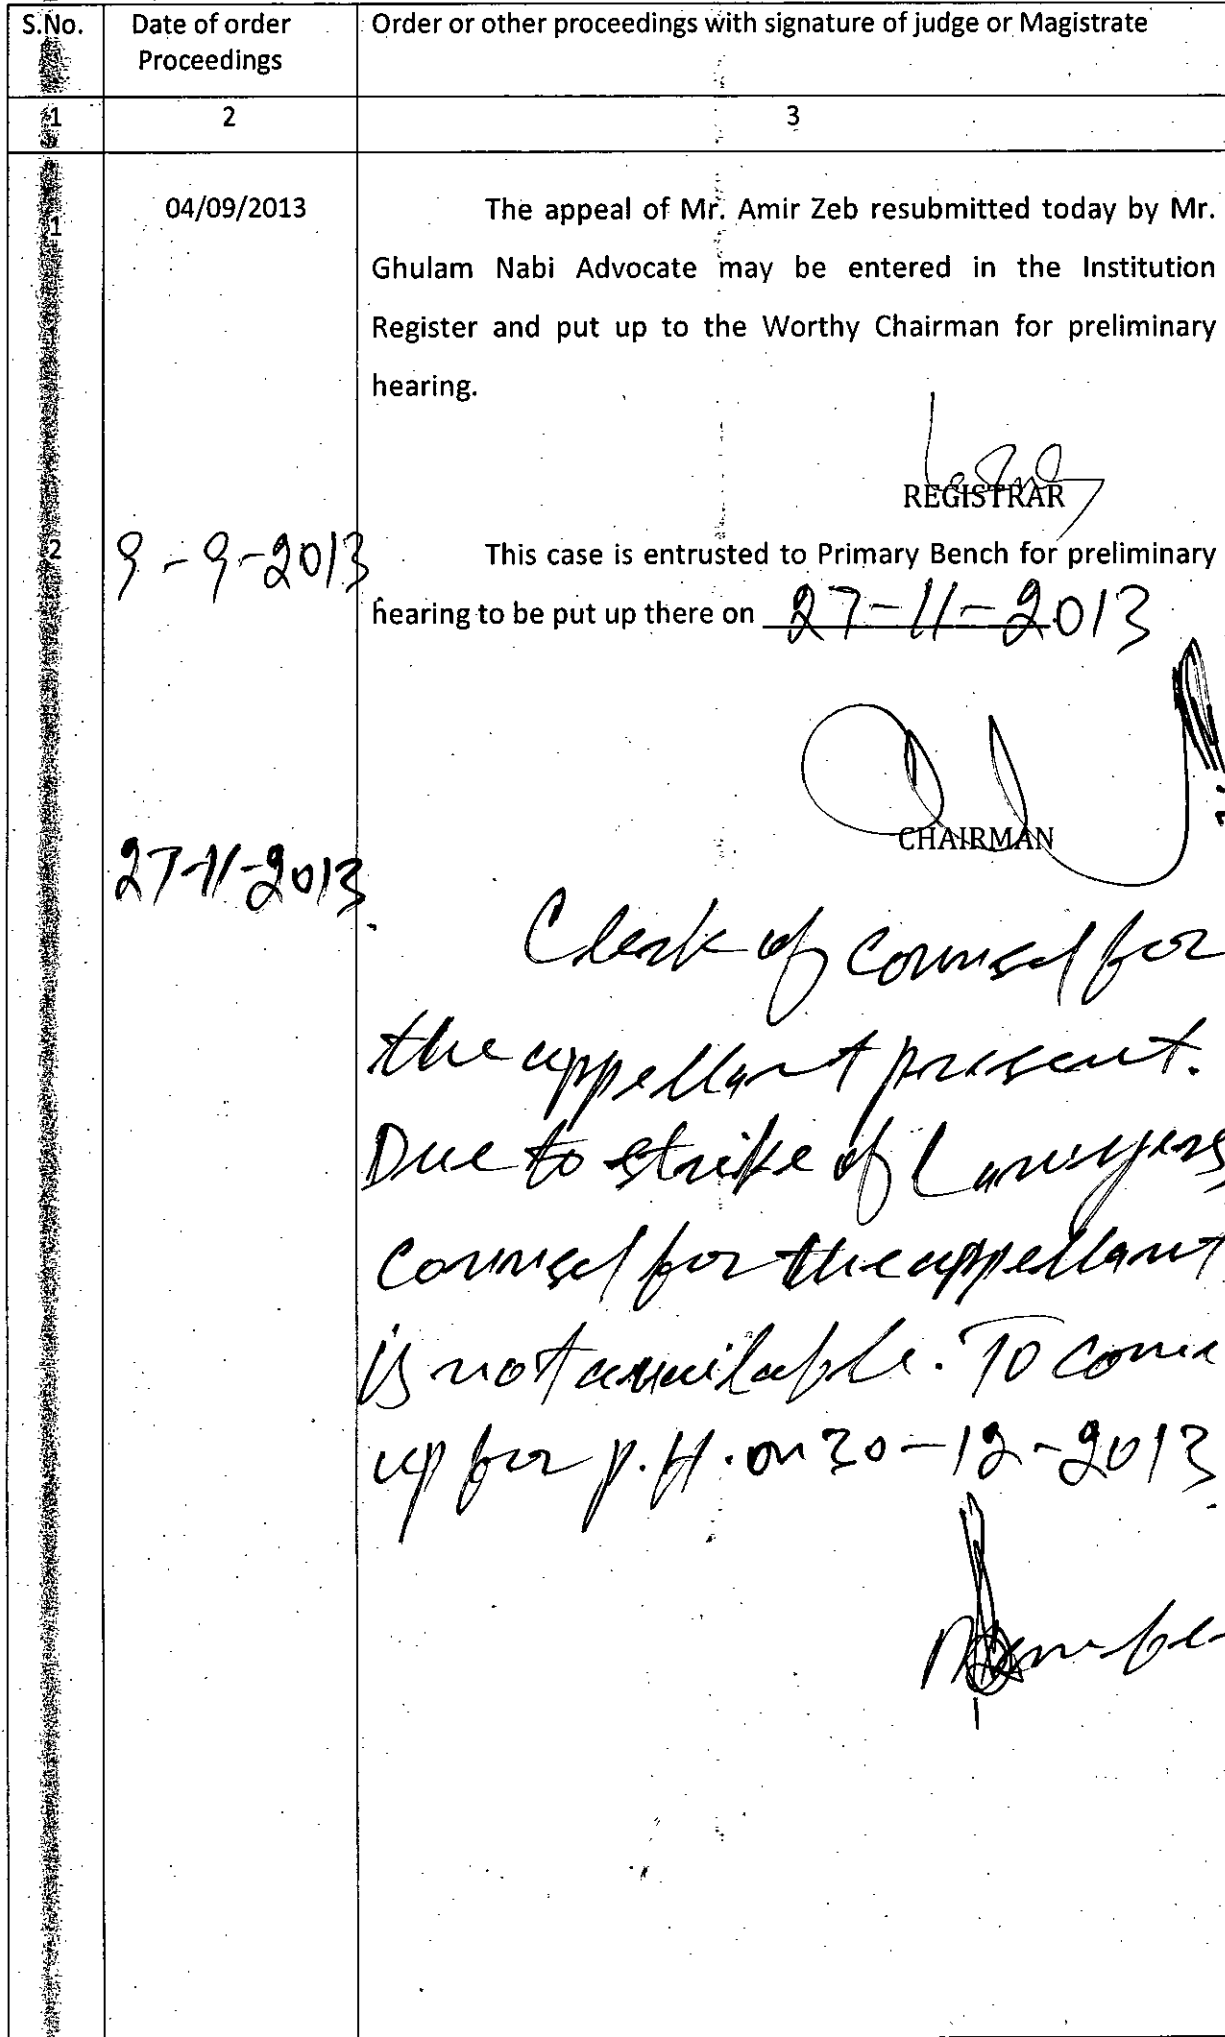 S.No. Date of order Order or other proceedings with signature of judge or Magistrate
Proceedings
1 2 3
1 04/09/2013 The appeal of Mr. Amir Zeb resubmitted today by Mr.
Ghulam Nabi Advocate may be entered in the Institution
Register and put up to the Worthy Chairman for preliminary
hearing.
REGISTRAR
2 9-9-2013 This case is entrusted to Primary Bench for preliminary
hearing to be put up there on 27-11-2013
CHAIRMAN
27-11-2013
Clerk of counsel for
the appellant present.
Due to strike of Lawyers,
counsel for the appellant
is not available. To come
up for p.H. on 30-12-2013.
Member